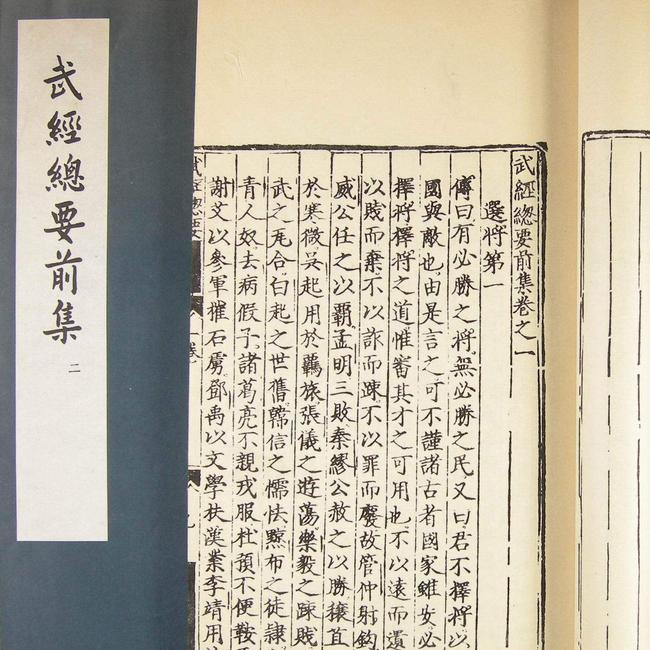 武經總要前集
二
武經總要前集卷之一
選將第一
傳曰有必勝之將無必勝之民又曰君不擇將以
國與敵也由是言之可不謹諸古者國家雖安必
擇將擇將之道惟審其才之可用也不以遠而遺
以賤而棄不以詐而踈不以罪而廢故管仲射鉤
威公任之以霸孟明三敗秦繆公赦之以勝穰直
於寒微吳起用於羈旅張儀之遊蕩樂毅之踈賤
武之瓦合白起之世舊韓信之懦怯黥布之徒隸
青人奴去病假子諸葛亮不親戎服杜預不便鞍
謝艾以參軍摧石虜鄧禹以文學扶漢業李靖用
武經總要